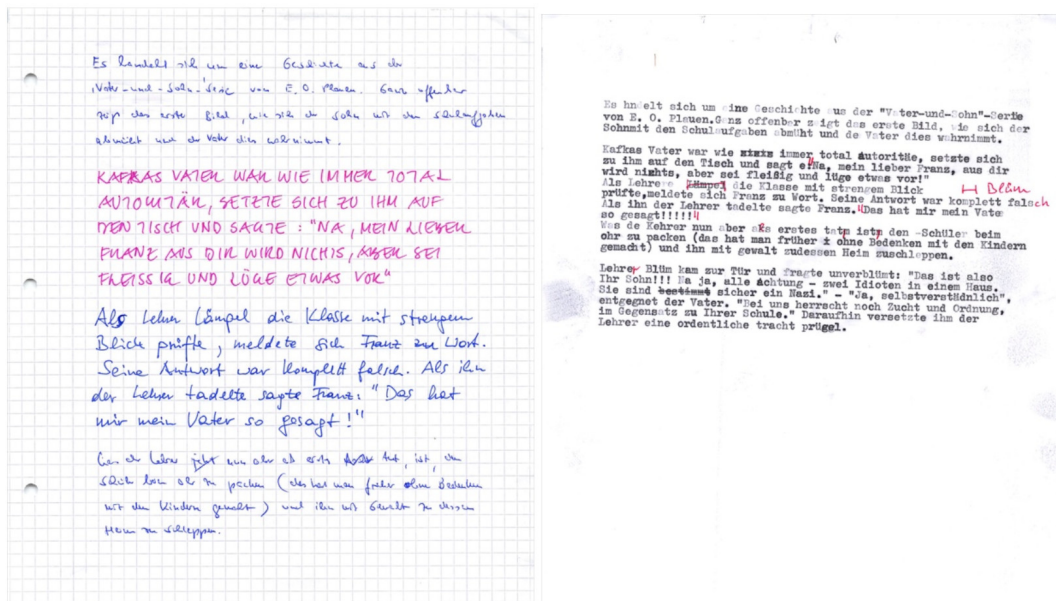 Es handelt sich um eine Geschichte aus der
"Vater-und-Sohn"-Serie von E. O. Plauen. Ganz offenbar
zeigt das erste Bild, wie sich der Sohn mit den Schulaufgaben
abmüht und der Vater dies wahrnimmt.
KAFKAS VATER WAR WIE IMMER TOTAL
AUTORITÄR, SETZTE SICH ZU IHM AUF
DEN TISCH UND SAGTE: "NA, MEIN LIEBER
FRANZ AUS DIR WIRD NICHTS, ABER SEI
FLEISSIG UND LÜGE ETWAS VOR"
Als Lehrer Lämpel die Klasse mit strengem
Blick prüfte, meldete sich Franz zu Wort.
Seine Antwort war komplett falsch. Als ihn
der Lehrer tadelte sagte Franz: "Das hat
mir mein Vater so gesagt!"
Was der Lehrer nun aber als erstes tut, ist, den
Schüler beim Ohr zu packen (das hat man früher ohne Bedenken
mit den Kindern gemacht) und ihn mit Gewalt zu dessen
Heim zu schleppen.
Es hndelt sich um ine Geschichte us der "Vater-und-Sohn"-Serie
von E. O. Plauen.Ganz offenbar zeigt das erste Bild, wie sich der
Sohnmit den Schulaufgaben abmüht und de Vater dies wahrnimmt.
Kafkas Vater war wie immer total Autoritäe, setzte sich
zu ihm auf den Tisch und sagt e"Na, mein lieber Franz, aus dir
wird nichts, aber sei fleißig und lüge etwas vor!"
Als Lehrer Lämpel die Klasse mit strengem Blick
prüfte,meldete sich Franz zu Wort. Seine Antwort war komplett falsch
Als ihn der Lehrer tadelte sagte Franz."Das hat mir mein Vate
so gesagt!!!!!"
Was de Kehrer nun aber als erstes tat, ist, den -Schüler beim
ohr zu packen (das hat man früher ohne Bedenken mit den Kindern
gemacht) und ihn mit gewalt zudessen Heim zuschleppen.
Lehrer Blüm kam zur Tür und fragte unverblümt: "Das ist also
Ihr Sohn!!! Na ja, alle Achtung - zwei Idioten in einem Haus.
Sie sind bestimmt sicher ein Nazi." - "Ja, selbstverständnlich",
entgegnet der Vater. "Bei uns herrscht noch Zucht und Ordnung,
im Gegensatz zu Ihrer Schule." Daraufhin versetzte ihm der
Lehrer eine ordentliche tracht prügel.
Blüm